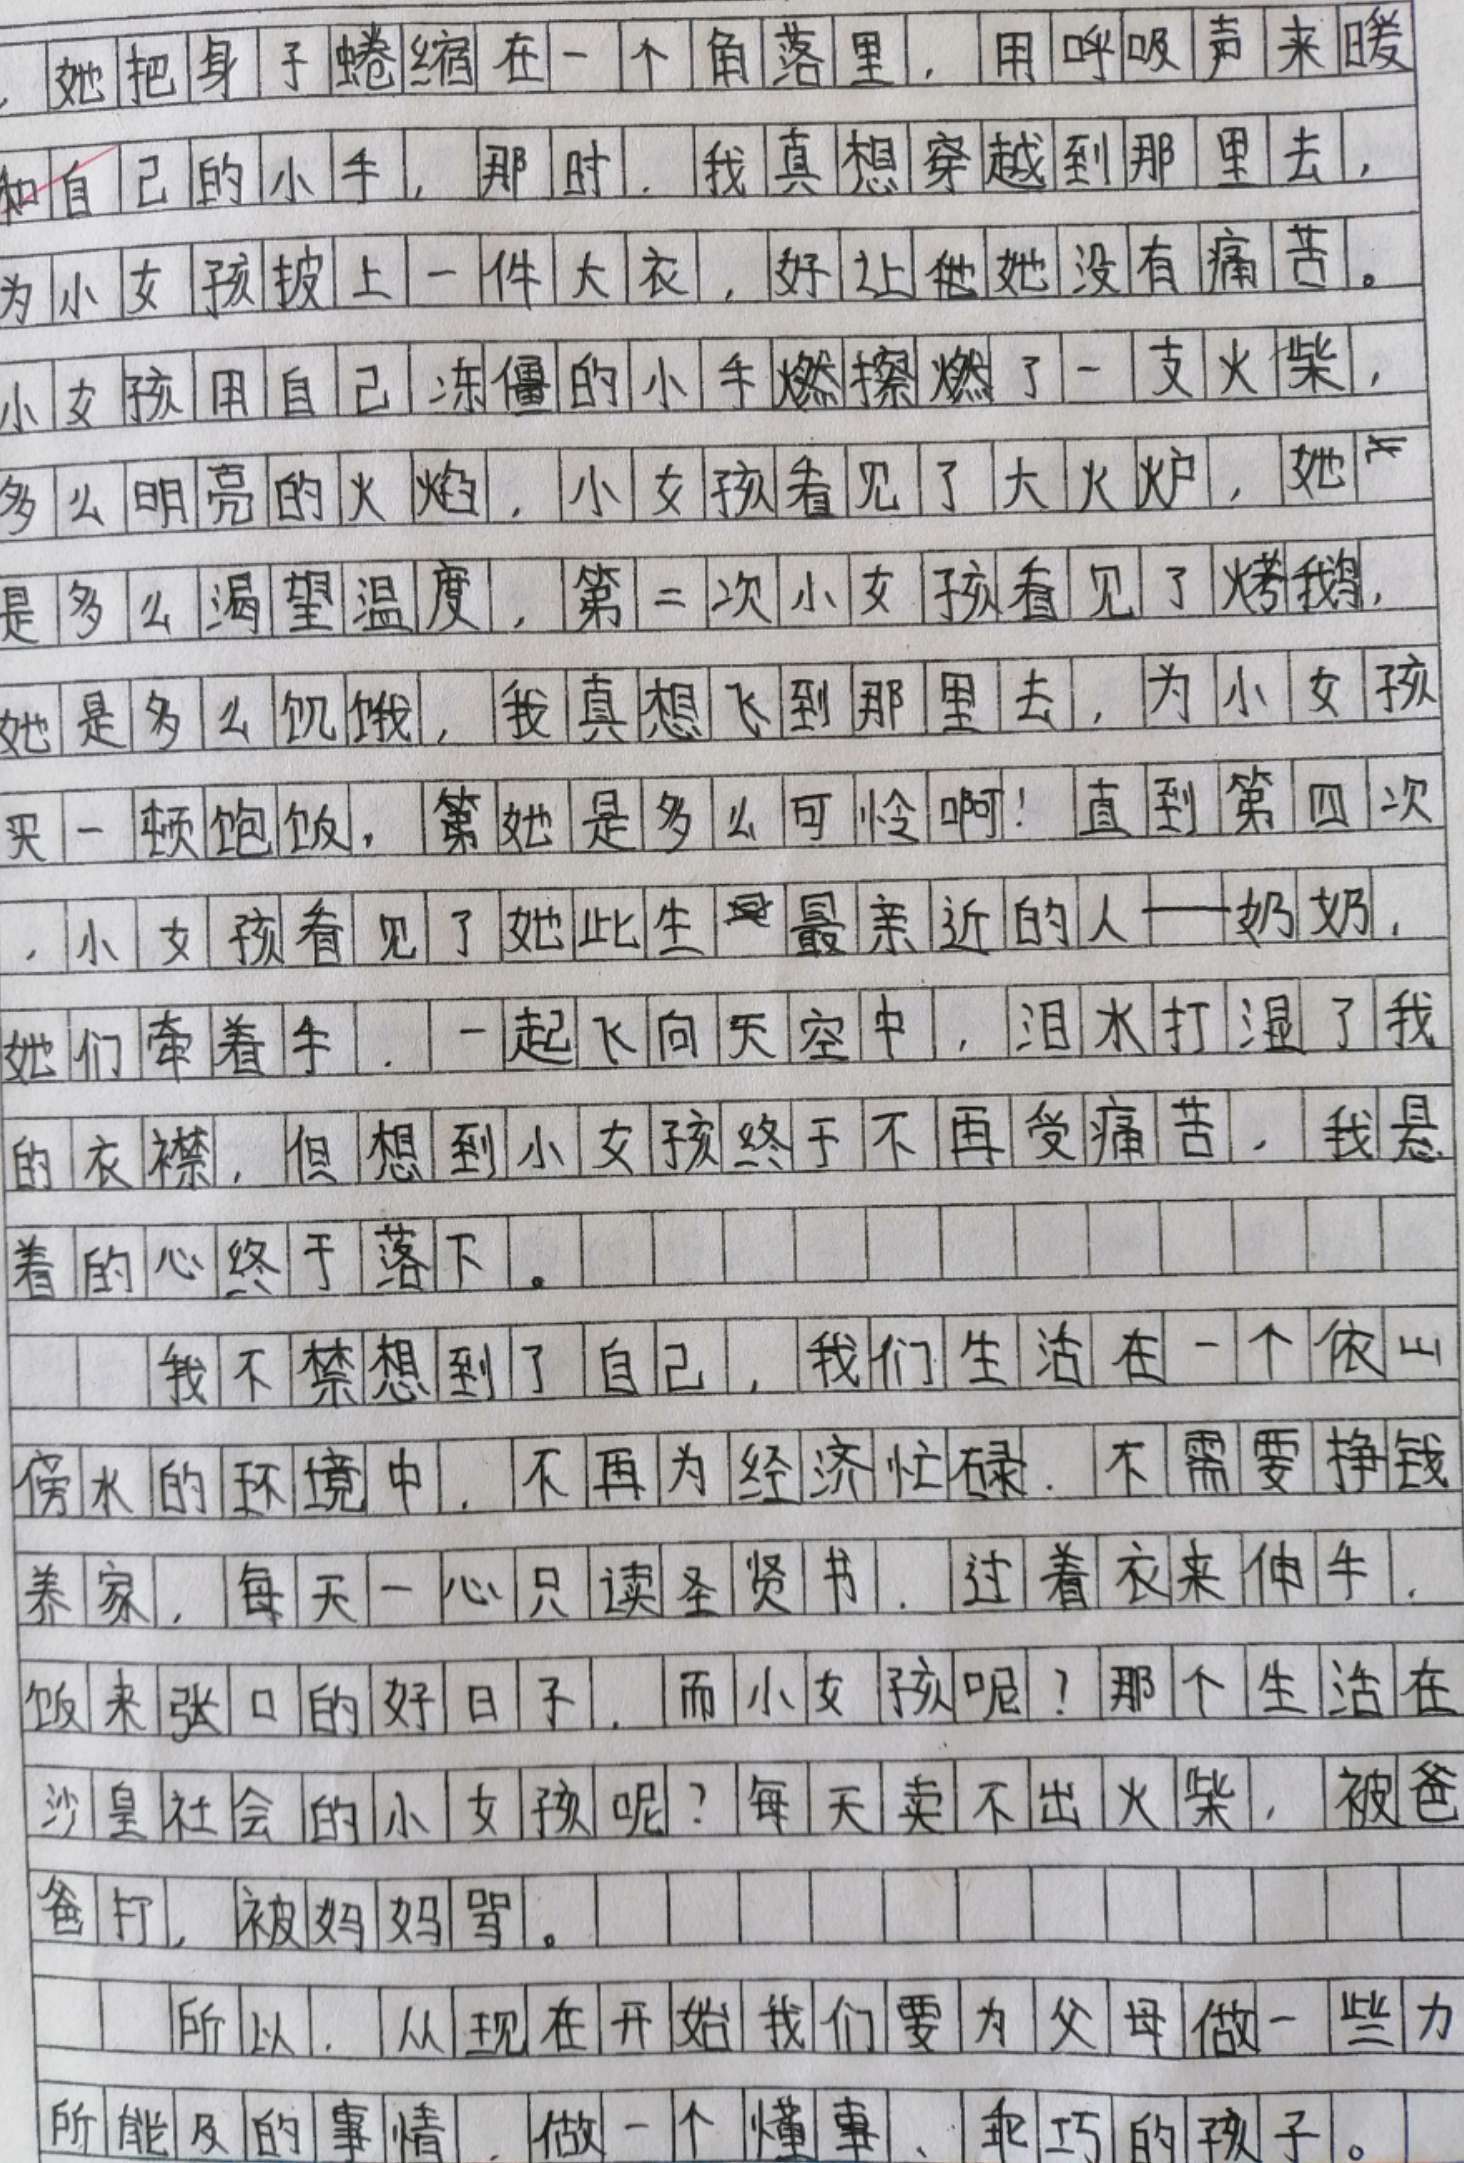 ，她把身子蜷缩在一个角落里，用呼吸声来暖
和自己的小手，那时，我真想穿越到那里去，
为小女孩披上一件大衣，好让她没有痛苦。
小女孩用自己冻僵的小手擦燃了一支火柴，
多么明亮的火焰，小女孩看见了大火炉，她
是多么渴望温度，第二次小女孩看见了烤鹅，
她是多么饥饿，我真想飞到那里去，为小女孩
买一顿饱饭，她是多么可怜啊！直到第四次
，小女孩看见了她此生最亲近的人——奶奶，
她们牵着手，一起飞向天空中，泪水打湿了我
的衣襟，但想到小女孩终于不再受痛苦，我悬
着的心终于落下。
我不禁想到了自己，我们生活在一个依山
傍水的环境中，不再为经济忙碌，不需要挣钱
养家，每天一心只读圣贤书，过着衣来伸手，
饭来张口的好日子，而小女孩呢？那个生活在
沙皇社会的小女孩呢？每天卖不出火柴，被爸
爸打，被妈妈骂。
所以，从现在开始我们要为父母做一些力
所能及的事情，做一个懂事、乖巧的孩子。